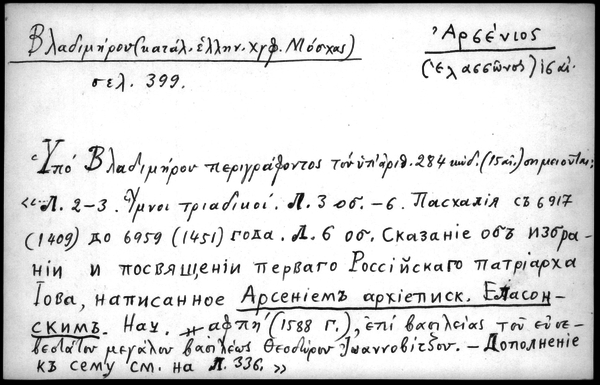 Βλαδιμήρου (κατάλ. ἑλλην. χγφ. Μόσχας)
σελ. 399.
Ἀρσένιος
(Ἐλασσῶνος) ις αἰ.
Ὑπό Βλαδιμήρου περιγράφοντος τόν ὑπ' ἀριθ. 284 κώδ. (15 αἰ.) σημειοῦται;
«Л. 2-3. Ὕμνοι τριαδικοί. Л. 3 об. -6. Пасхалія съ 6917
(1409) до 6959 (1451) года. Л. 6 об. Сказаніе объ избра-
ніи и посвященіи перваго Россійскаго патріарха
Іова, написанное Арсеніемъ архіеписк. Еласон-
скимъ. Нач. ͵αφπή (1588 г.), ἐπί βασιλείας τοῦ εὐσε-
βεστάτου μεγάλου βασιλέως Θεοδώρου Ἰωαννοβίτζου. - Дополненіе
къ сему см. на Л. 336. »